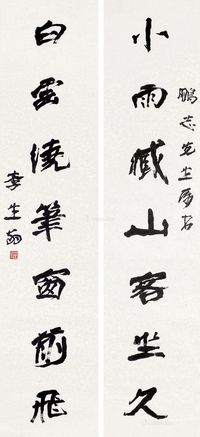 鵬志先生屬
小雨藏山客坐久
白雲繞筆窗前飛
李生翁